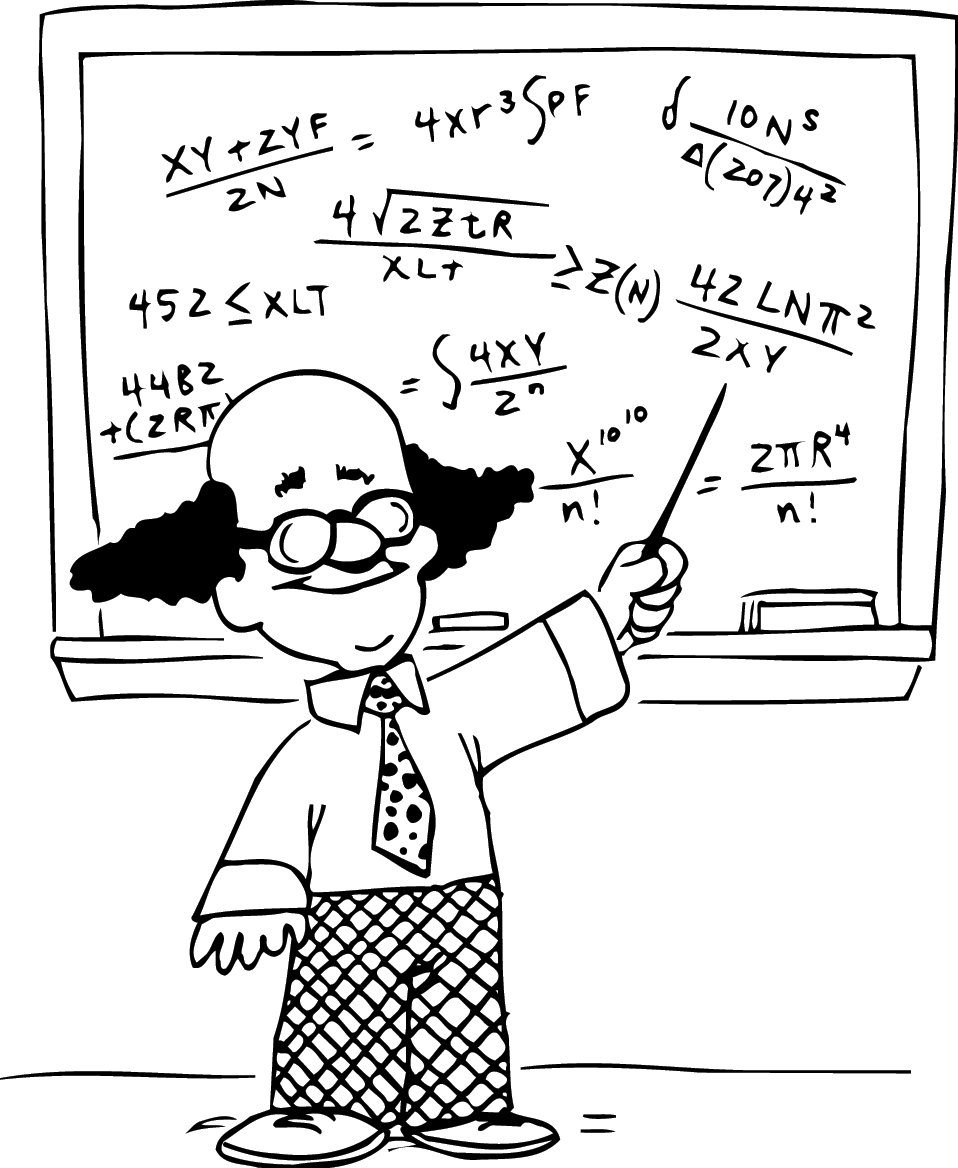 XY+ZYF/2N = 4xr³∫PF
∮ 10N^S/Δ(207)4²
4√2ZtR/XLT ≥ Z(N) 42LNπ²/2XY
452 ≤ XLT
44B2+(2Rπ = ∫4XY/2ⁿ
X^10^10/n! = 2πR⁴/n!